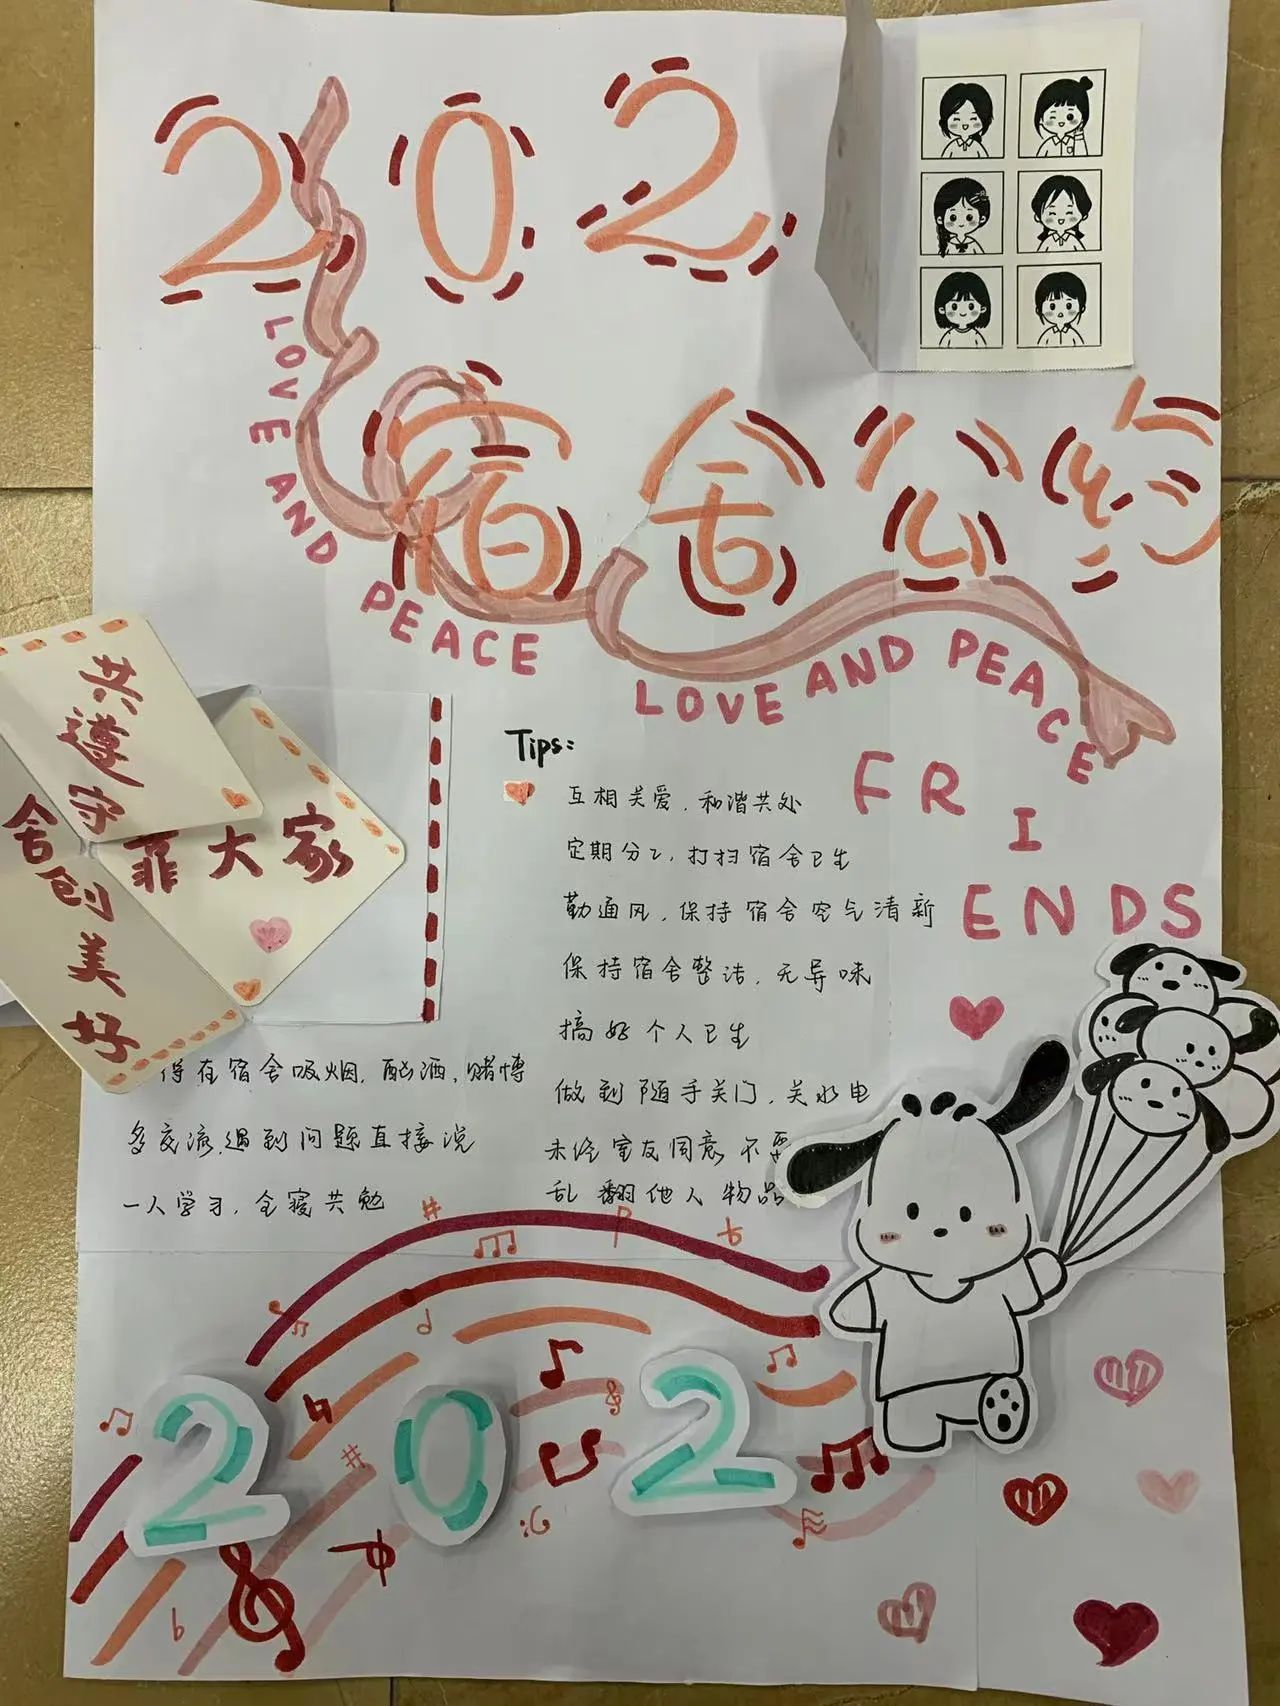 202
LOVE AND PEACE
宿舍公约
LOVE AND PEACE
FRIENDS
共遵守
靠大家
舍创美好
Tips:
互相关爱,和谐共处
定期分工,打扫宿舍卫生
勤通风,保持宿舍空气清新
保持宿舍整洁,无异味
搞好个人卫生
做到随手关门,关水电
未经室友同意不要
乱翻他人物品
得在宿舍吸烟,酗酒,赌博
多交流,遇到问题直接说
一人学习,全寝共勉
202